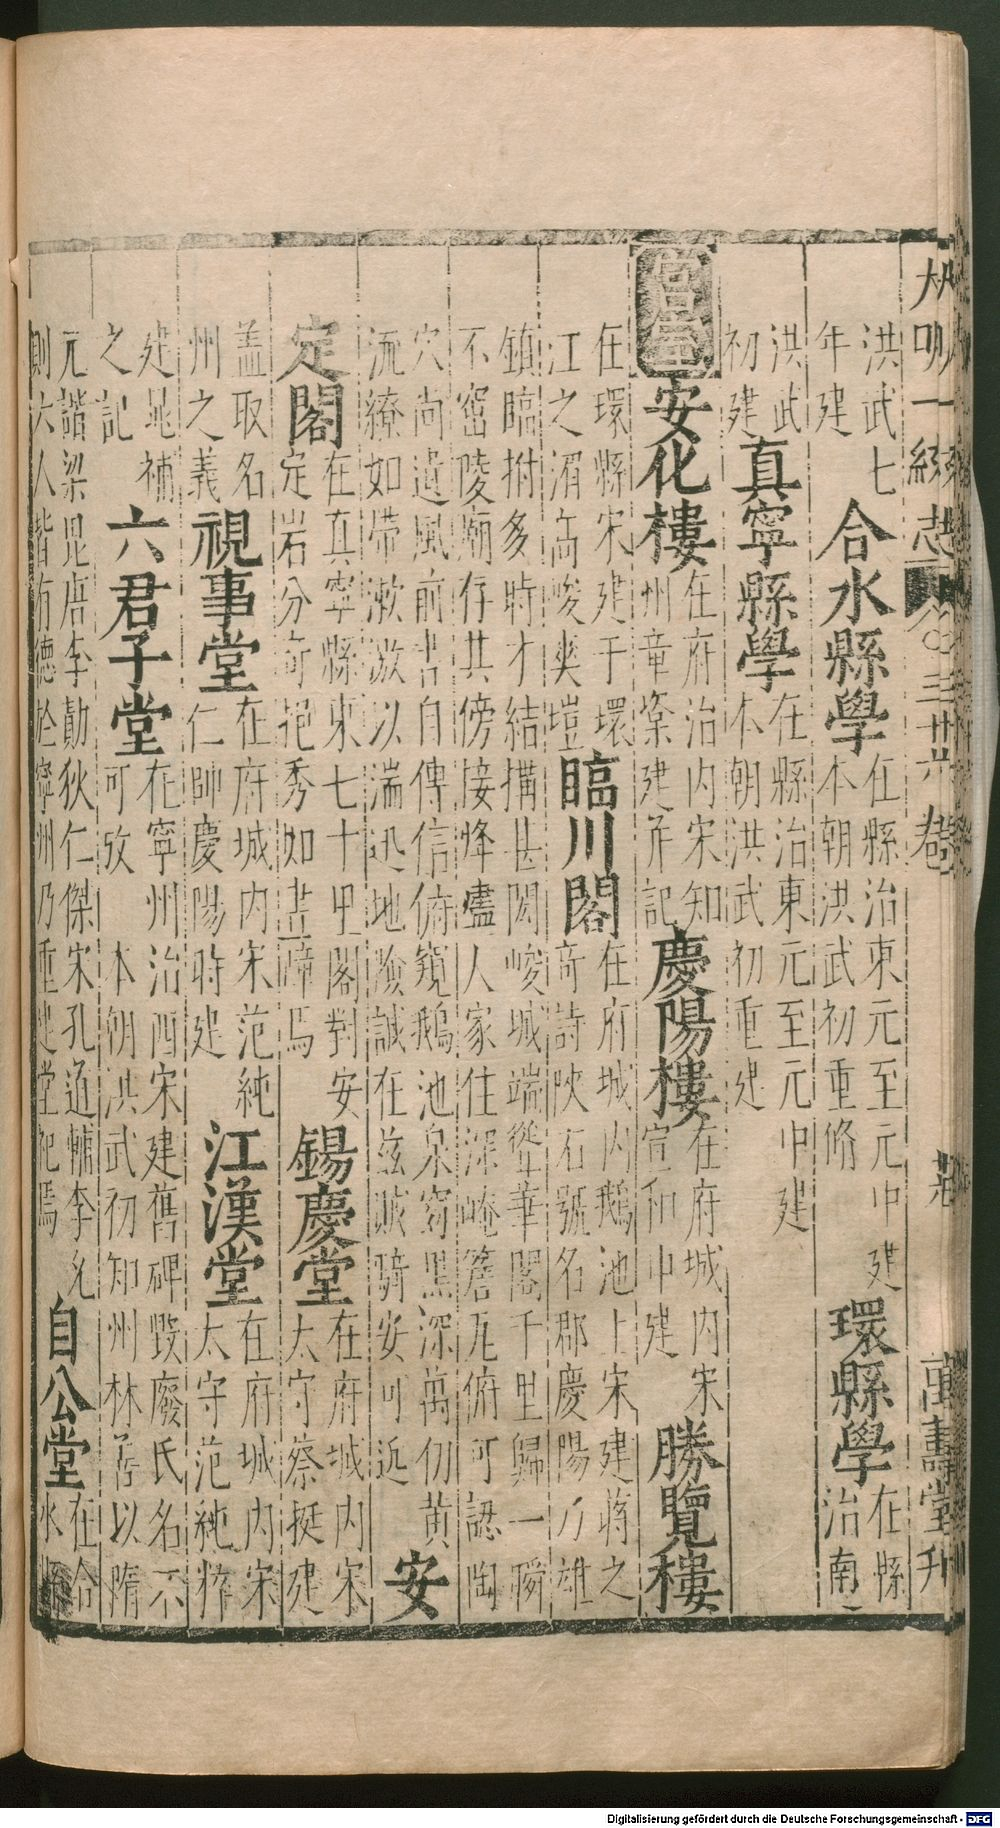 大明一統志 卷之三十六卷 萬壽堂刋
洪武七 合水縣學 在縣治東元至元中建 環縣學 在縣
年建 本朝洪武初重脩 治南
洪武 真寧縣學 在縣治東元至元中建
初建 本朝洪武初重建
宮室 安化樓 在府治内宋知 慶陽樓 在府城内宋 勝覽樓
州章楶建并記 宣和中建
在環縣宋建于環 臨川閣 在府城内鵝池上宋建蔣之
江之湄高峻爽塏 奇詩陜石號名郡慶陽乃雄
鎮臨拊多時才結搆甚閎峻城端聳華閣千里歸一瞬
不窋陵廟存其傍接烽燼人家住深崦簷瓦俯可認陶
穴尚遺風前書自傳信俯窺鵝池泉窈黑深萬仞黄
流繚如帶漱激以湍迅地險誠在兹㦸騎安可近 安
定閣 在真寧縣東七十里閣對安 錫慶堂 在府城内宋
定岩分奇挹秀如畫障焉 太守蔡挺建
盖取名 視事堂 在府城内宋范純 江漢堂 在府城内宋
州之義 仁帥慶陽時建 太守范純粹
建晁補 六君子堂 在寧州治西宋建舊碑毀廢氏名不
之記 可攷 本朝洪武初知州林 以隋
元諧梁毘唐李勣狄仁傑宋孔道輔李允 自公堂 在合
則六人皆有德於寧州乃重建堂祀焉 水縣
Digitalisierung gefördert durch die Deutsche Forschungsgemeinschaft - DFG